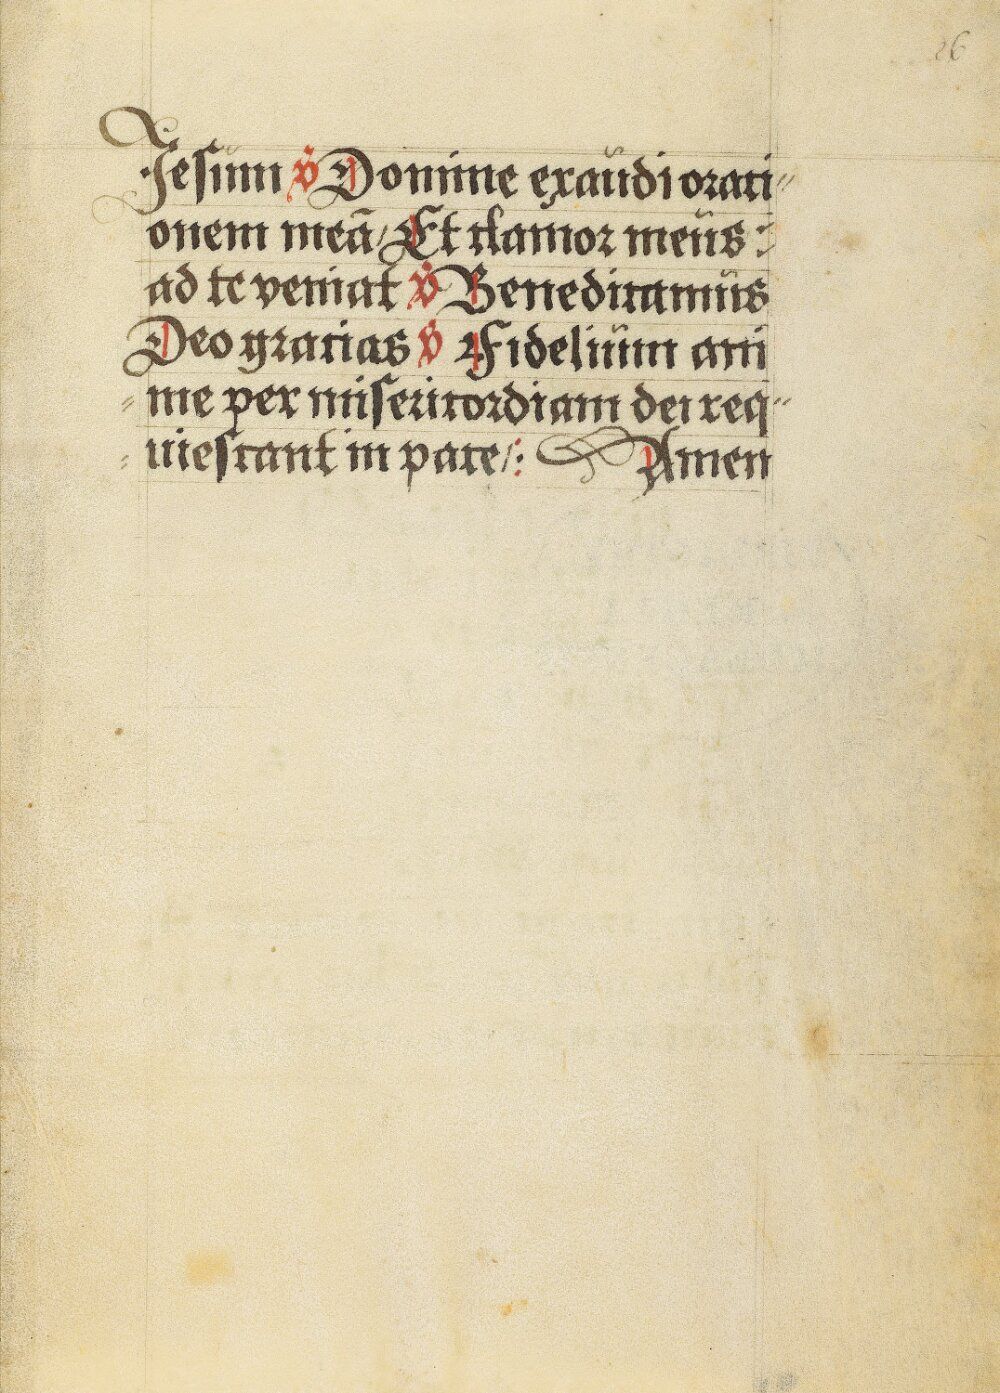 26
Jesum ℣ Domine exaudi orati⸗
onem meā / Et clamor meus :
ad te veniat ℣ Benedicamus
Deo gracias ℣ Fidelium ani
⸗ me per misericordiam dei req⸗
⸗ uiescant in pace /: Amen